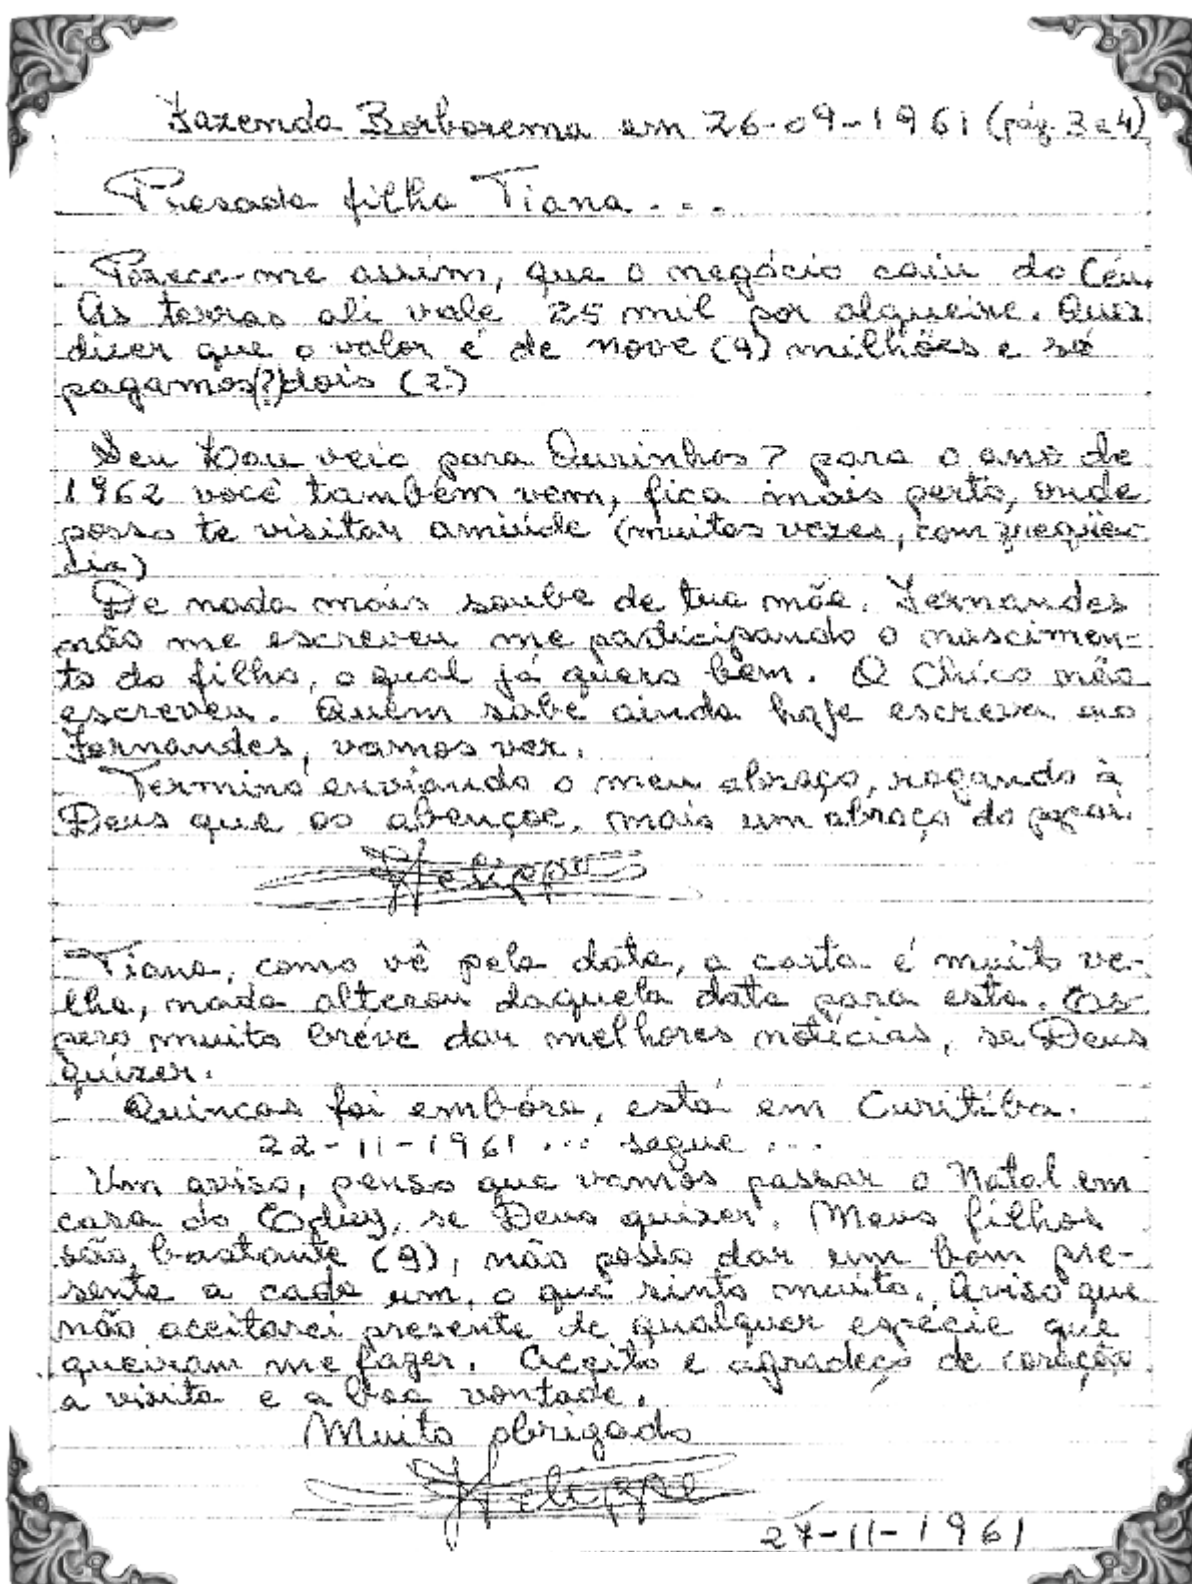 Fazenda Borborema em 26-09-1961 (pág. 3 e 4)
Presada filha Tiana...
Parece-me assim, que o negócio caiu do Céu.
As terras ali vale 25 mil por alqueire. Quer
dizer que o valor é de nove (9) milhões e só
pagamos(?)dois (2)
Seu Lau veio para Ourinhos? para o ano de
1962 você também vem, fica mais perto, onde
posso te visitar amiúde (muitas vezes, com freqüên-
cia)
De nada mais soube de tua mãe. Fernandes
não me escreveu me participando o nascimen-
to do filho, o qual já quero bem. O Chico não
escreveu. Quem sabe ainda hoje escreva ao
Fernandes, vamos ver.
Termino enviando o meu abraço, rogando à
Deus que os abençoe, mais um abraço do papai.
Felippe
Tiana, como vê pela data, a carta é muito ve-
lha, nada alterou daquela data para esta. Es-
pero muito breve dar melhores notícias, se Deus
quizer.
Quincas foi embóra, está em Curitiba.
22-11-1961 ... segue ...
Um aviso, penso que vamos passar o Natal em
casa do se Deus quizer. Meus filhos
são bastante (9), não posso dar um bom pre-
sente a cada um, o que sinto muito. Aviso que
não aceitarei presente de qualquer espécie que
queiram me fazer. Aceito e agradeço de coração
a visita e a boa vontade.
Muito obrigado
Felippe
27-11-1961